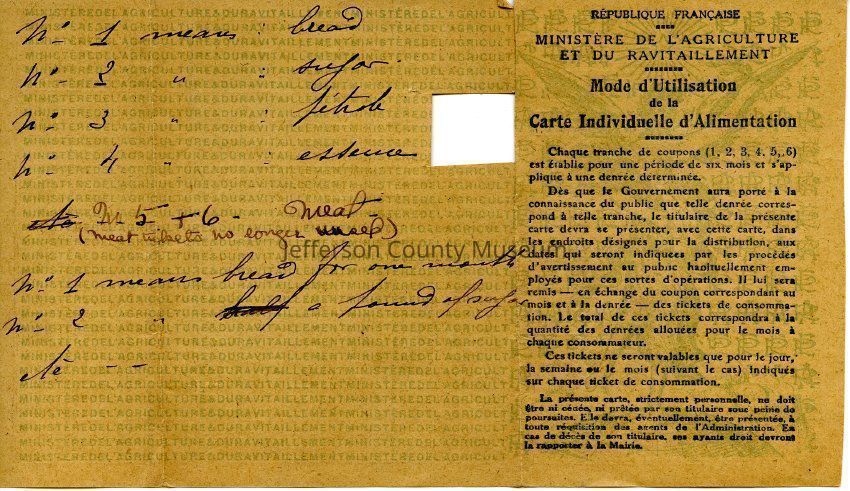 No 1 means bread
No 2 " " sugar
No 3 " " pétrole
No 4 " " essence
etc No 5 + 6 - Meat -
(meat tickets no longer used)
No 1 means bread for one month
No 2 " half a pound of sugar
etc - -
Jefferson County Museum
RÉPUBLIQUE FRANÇAISE
MINISTÈRE DE L'AGRICULTURE
ET DU RAVITAILLEMENT
Mode d'Utilisation
de la
Carte Individuelle d'Alimentation
Chaque tranche de coupons (1, 2, 3, 4, 5, 6)
est établie pour une période de six mois et s'ap-
plique à une denrée déterminée.
Dès que le Gouvernement aura porté à la
connaissance du public que telle denrée corres-
pond à telle tranche, le titulaire de la présente
carte devra se présenter, avec cette carte, dans
les endroits désignés pour la distribution, aux
dates qui seront indiquées par les procédés
d'avertissement au public habituellement em-
ployés pour ces sortes d'opérations. Il lui sera
remis — en échange du coupon correspondant au
mois et à la denrée — des tickets de consomma-
tion. Le total de ces tickets correspondra à la
quantité des denrées allouées pour le mois à
chaque consommateur.
Ces tickets ne seront valables que pour le jour,
la semaine ou le mois (suivant le cas) indiqués
sur chaque ticket de consommation.
La présente carte, strictement personnelle, ne doit
être ni cédée, ni prêtée par son titulaire sous peine de
poursuites. Elle devra, éventuellement, être présentée, à
toute réquisition des agents de l'Administration. En
cas de décès de son titulaire, ses ayants droit devront
la rapporter à la Mairie.
MINISTÈRE DE L'AGRICULTURE & DU RAVITAILLEMENT